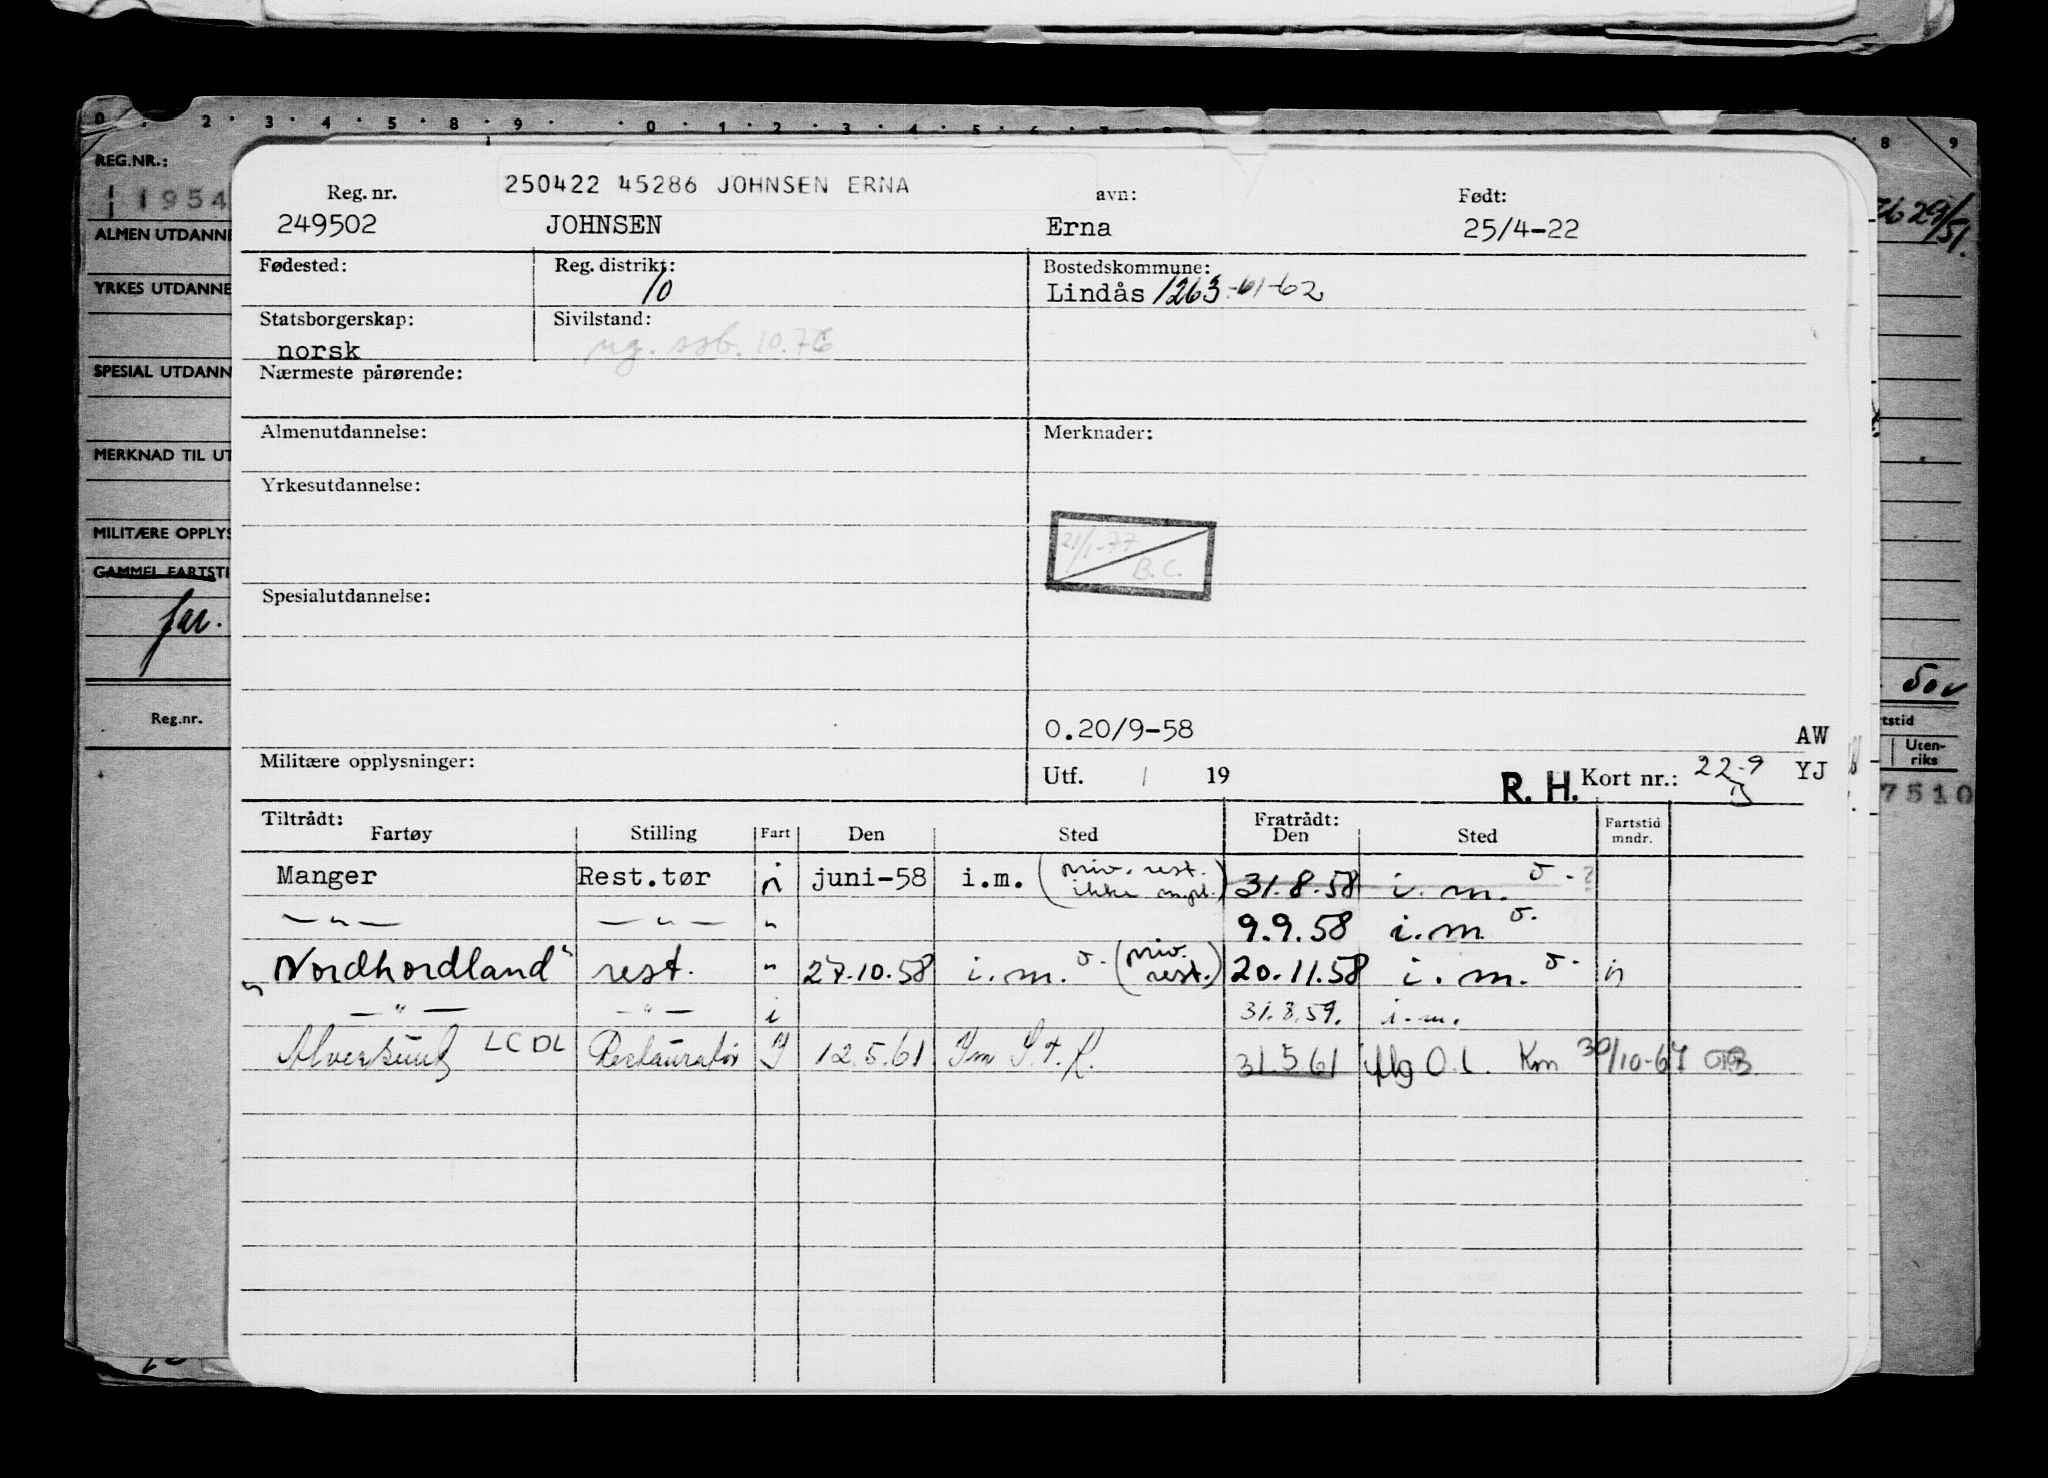 0 2 3 4 5 8 9 0 1 2 3 4 5 6 7 8 9
REG.NR.:
1954
ALMEN UTDANNE
YRKES UTDANNE
SPESIAL UTDANN
MERKNAD TIL UT
MILITÆRE OPPLYS
GAMMEL FARTSTI
far.
Reg.nr.
29/51.
50
rtstid
Uten-
riks
7510
250422 45286 JOHNSEN ERNA
Reg. nr. avn: Født:
249502 JOHNSEN Erna 25/4-22
Fødested: Reg. distrikt: Bostedskommune:
10 Lindås 1263-61-62
Statsborgerskap: Sivilstand:
norsk ssb. 10.76
Nærmeste pårørende:
Almenutdannelse: Merknader:
Yrkesutdannelse:
21/1-77
B.C.
Spesialutdannelse:
O.20/9-58 AW
Militære opplysninger: Utf. / 19 R. H. Kort nr.: 22-9 YJ
Tiltrådt: Fratrådt: Fartstid
Fartøy Stilling Fart Den Sted Den Sted mndr.
Manger Rest.tør juni-58 i.m. (priv. rest. 31.8.58 i.m. ?
ikke )
— " — — " — " 9.9.58 i.m
"Nordhordland" rest. " 27.10.58 i.m. (priv. rest.) 20.11.58 i.m.
— " — — " — i 31.8.59. i.m.
Alversund LCDL Restauratør I 12.5.61 Im 31.5.61 O.L. Km 30/10-67